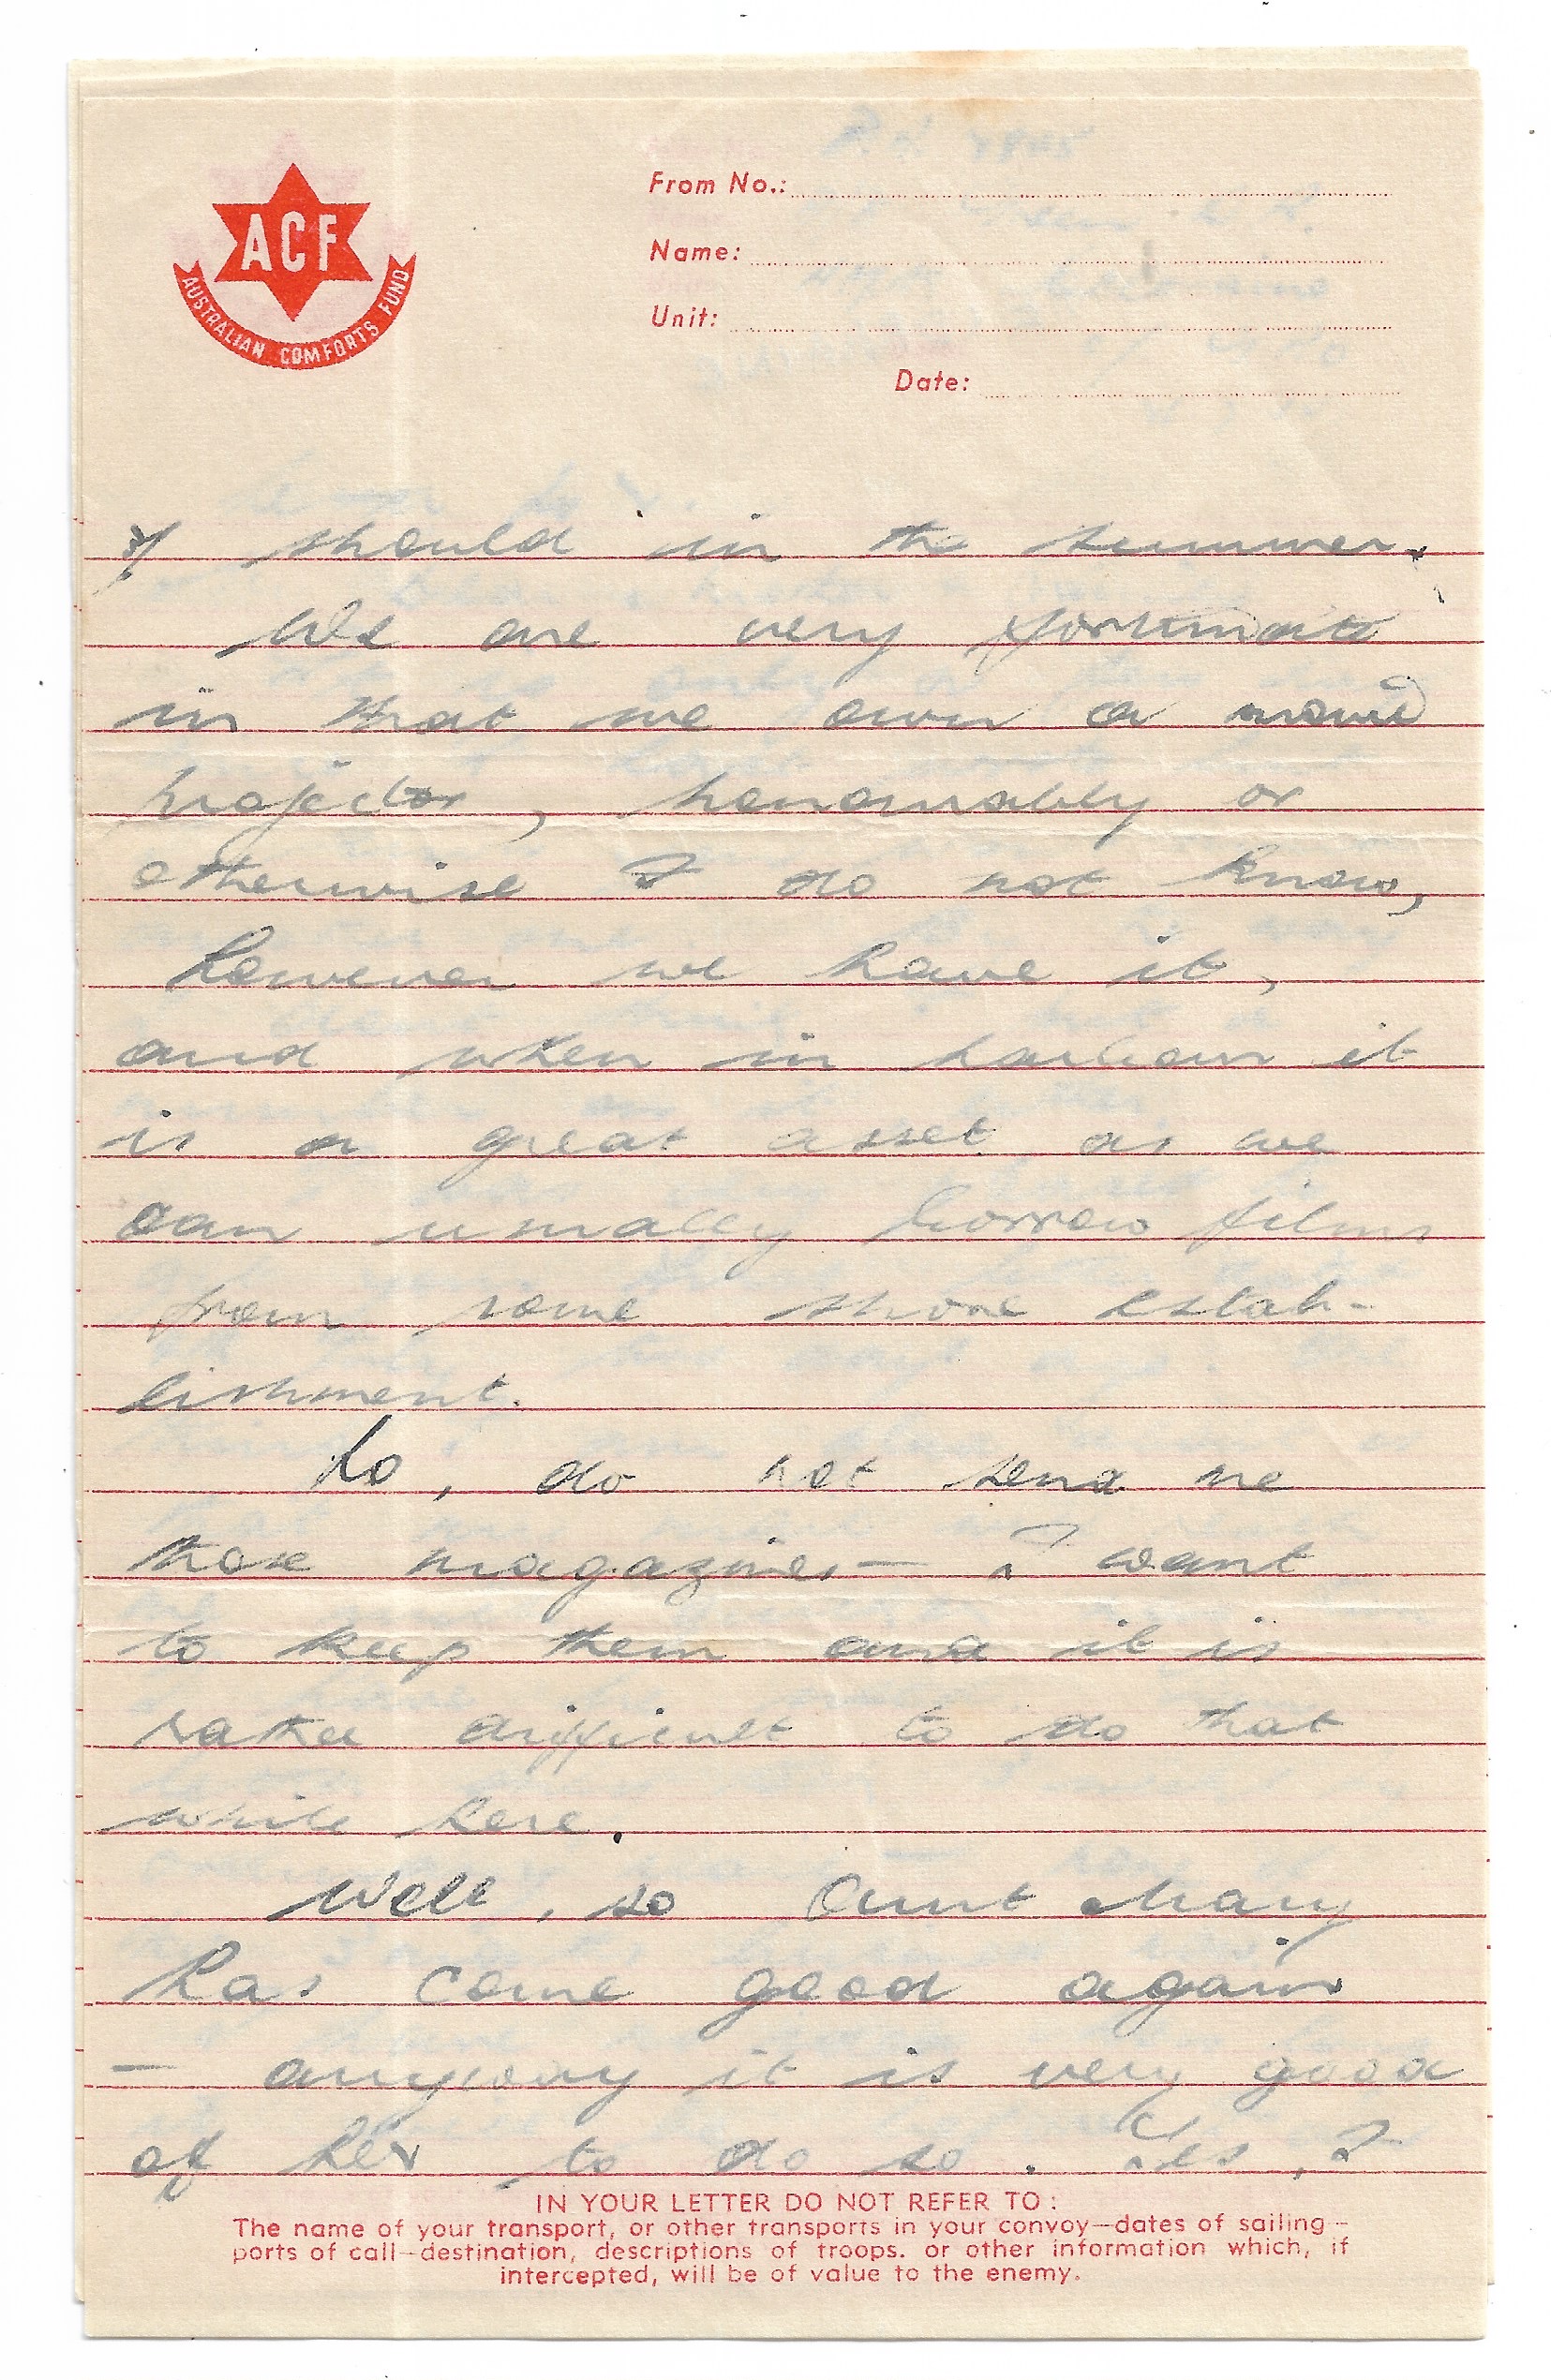 ACF
AUSTRALIAN COMFORTS FUND
From No.:
Name:
Unit:
Date:
I should in the summer.
We are very fortunate
in that we own a movie
projector, honourably or
otherwise I do not know,
however we have it,
and when in harbour it
is a great asset as we
can usually borrow films
from some shore estab-
lishment.
No, do not send me
those magazines — I want
to keep them and it is
rather difficult to do that
while here.
Well, so Aunt Mary
has come good again
— anyway it is very good
of her to do so. Yes, I
IN YOUR LETTER DO NOT REFER TO:
The name of your transport, or other transports in your convoy—dates of sailing—
ports of call—destination, descriptions of troops. or other information which, if
intercepted, will be of value to the enemy.